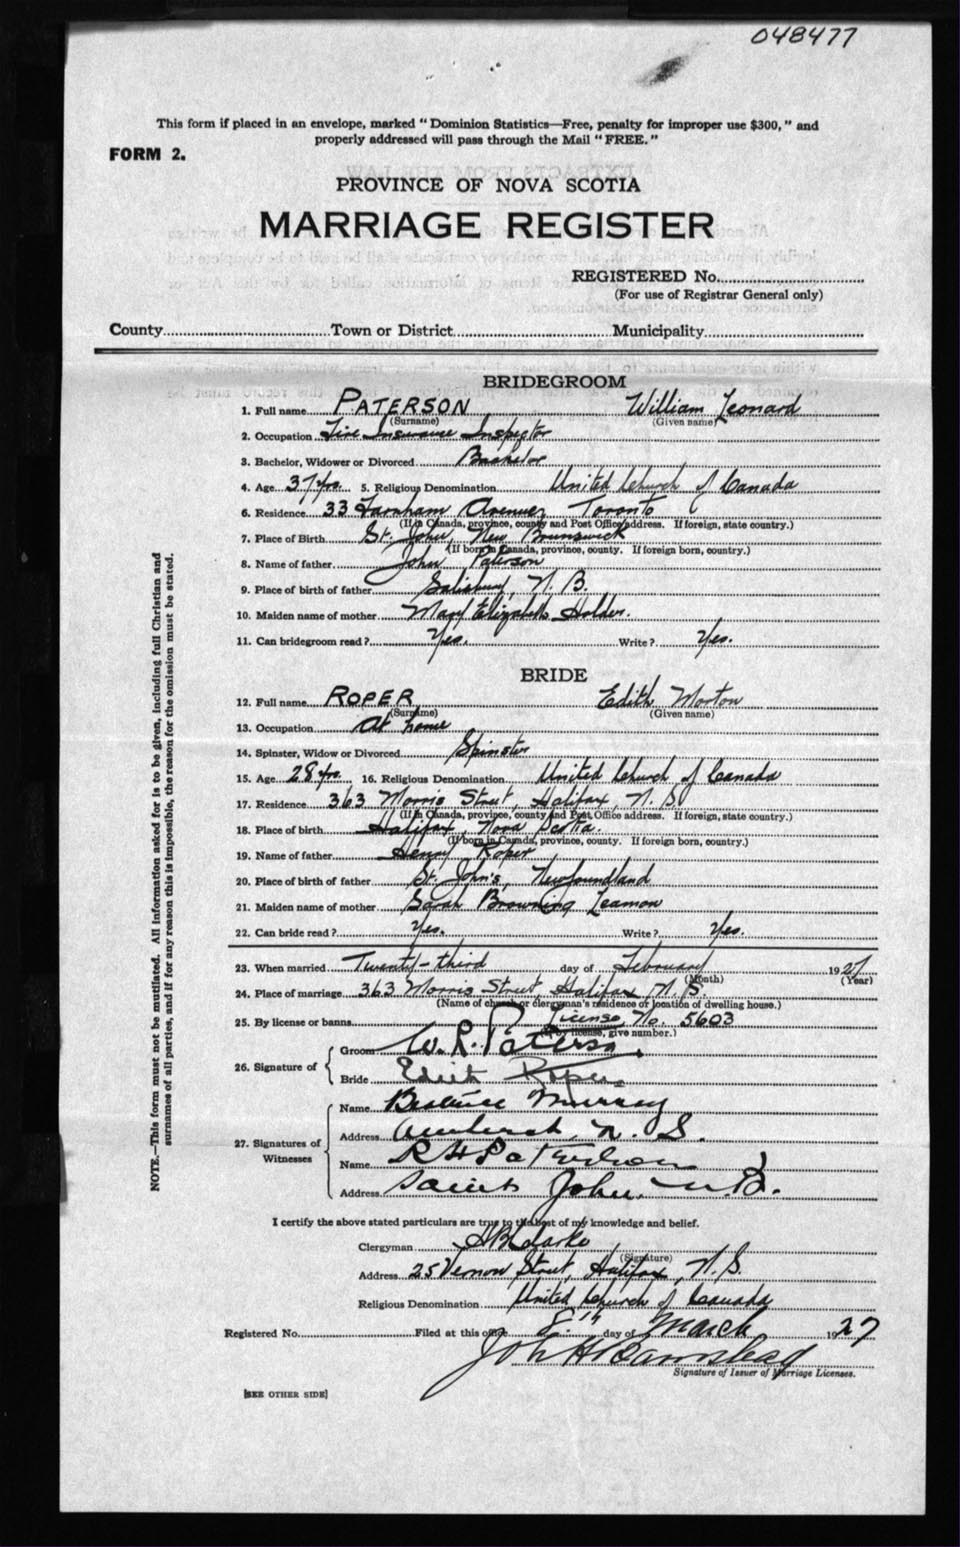 048477
This form if placed in an envelope, marked "Dominion Statistics—Free, penalty for improper use $300," and
properly addressed will pass through the Mail "FREE."
FORM 2.
PROVINCE OF NOVA SCOTIA
MARRIAGE REGISTER
REGISTERED No.
(For use of Registrar General only)
County Town or District Municipality
BRIDEGROOM
1. Full name PATERSON William Leonard
(Surname) (Given name)
2. Occupation Fire Insurance Inspector
3. Bachelor, Widower or Divorced Bachelor
4. Age 37 yrs. 5. Religious Denomination United Church of Canada
6. Residence 33 Farnham Avenue, Toronto
(If in Canada, province, county and Post Office address. If foreign, state country.)
7. Place of Birth St. John, New Brunswick
(If born in Canada, province, county. If foreign born, country.)
8. Name of father John Paterson
9. Place of birth of father Salisbury, N. B.
10. Maiden name of mother Mary Elizabeth Holder.
11. Can bridegroom read? Yes. Write? Yes.
BRIDE
12. Full name ROPER Edith Morton
(Surname) (Given name)
13. Occupation At home
14. Spinster, Widow or Divorced Spinster
15. Age 28 yrs. 16. Religious Denomination United Church of Canada
17. Residence 363 Morris Street, Halifax, N. S
(If in Canada, province, county and Post Office address. If foreign, state country.)
18. Place of birth Halifax, Nova Scotia.
(If born in Canada, province, county. If foreign born, country.)
19. Name of father Henry Roper
20. Place of birth of father St. John's, Newfoundland
21. Maiden name of mother Sarah Browning Leamon
22. Can bride read? Yes. Write? Yes.
23. When married Twenty-third day of February 1927
(Month) (Year)
24. Place of marriage 363 Morris Street, Halifax, N. S.
(Name of church or clergyman's residence or location of dwelling house.)
25. By license or banns License No. 5603
(If by license, give number.)
Groom W. L. Paterson.
26. Signature of
Bride Edith Roper
Name Beatrice Murray
Address Amherst, N. S.
27. Signatures of
Witnesses
Name R H Paterson
Address Saint John. N. B.
I certify the above stated particulars are true to the best of my knowledge and belief.
Clergyman Clarke
(Signature)
Address 25 Vernon Street, Halifax, N. S.
Religious Denomination United Church of Canada
Registered No. Filed at this office 8th day of March 1927
Signature of Issuer of Marriage Licenses.
[SEE OTHER SIDE]
NOTE.—This form must not be mutilated. All information asked for is to be given, including full Christian and
surnames of all parties, and if for any reason this is impossible, the reason for the omission must be stated.